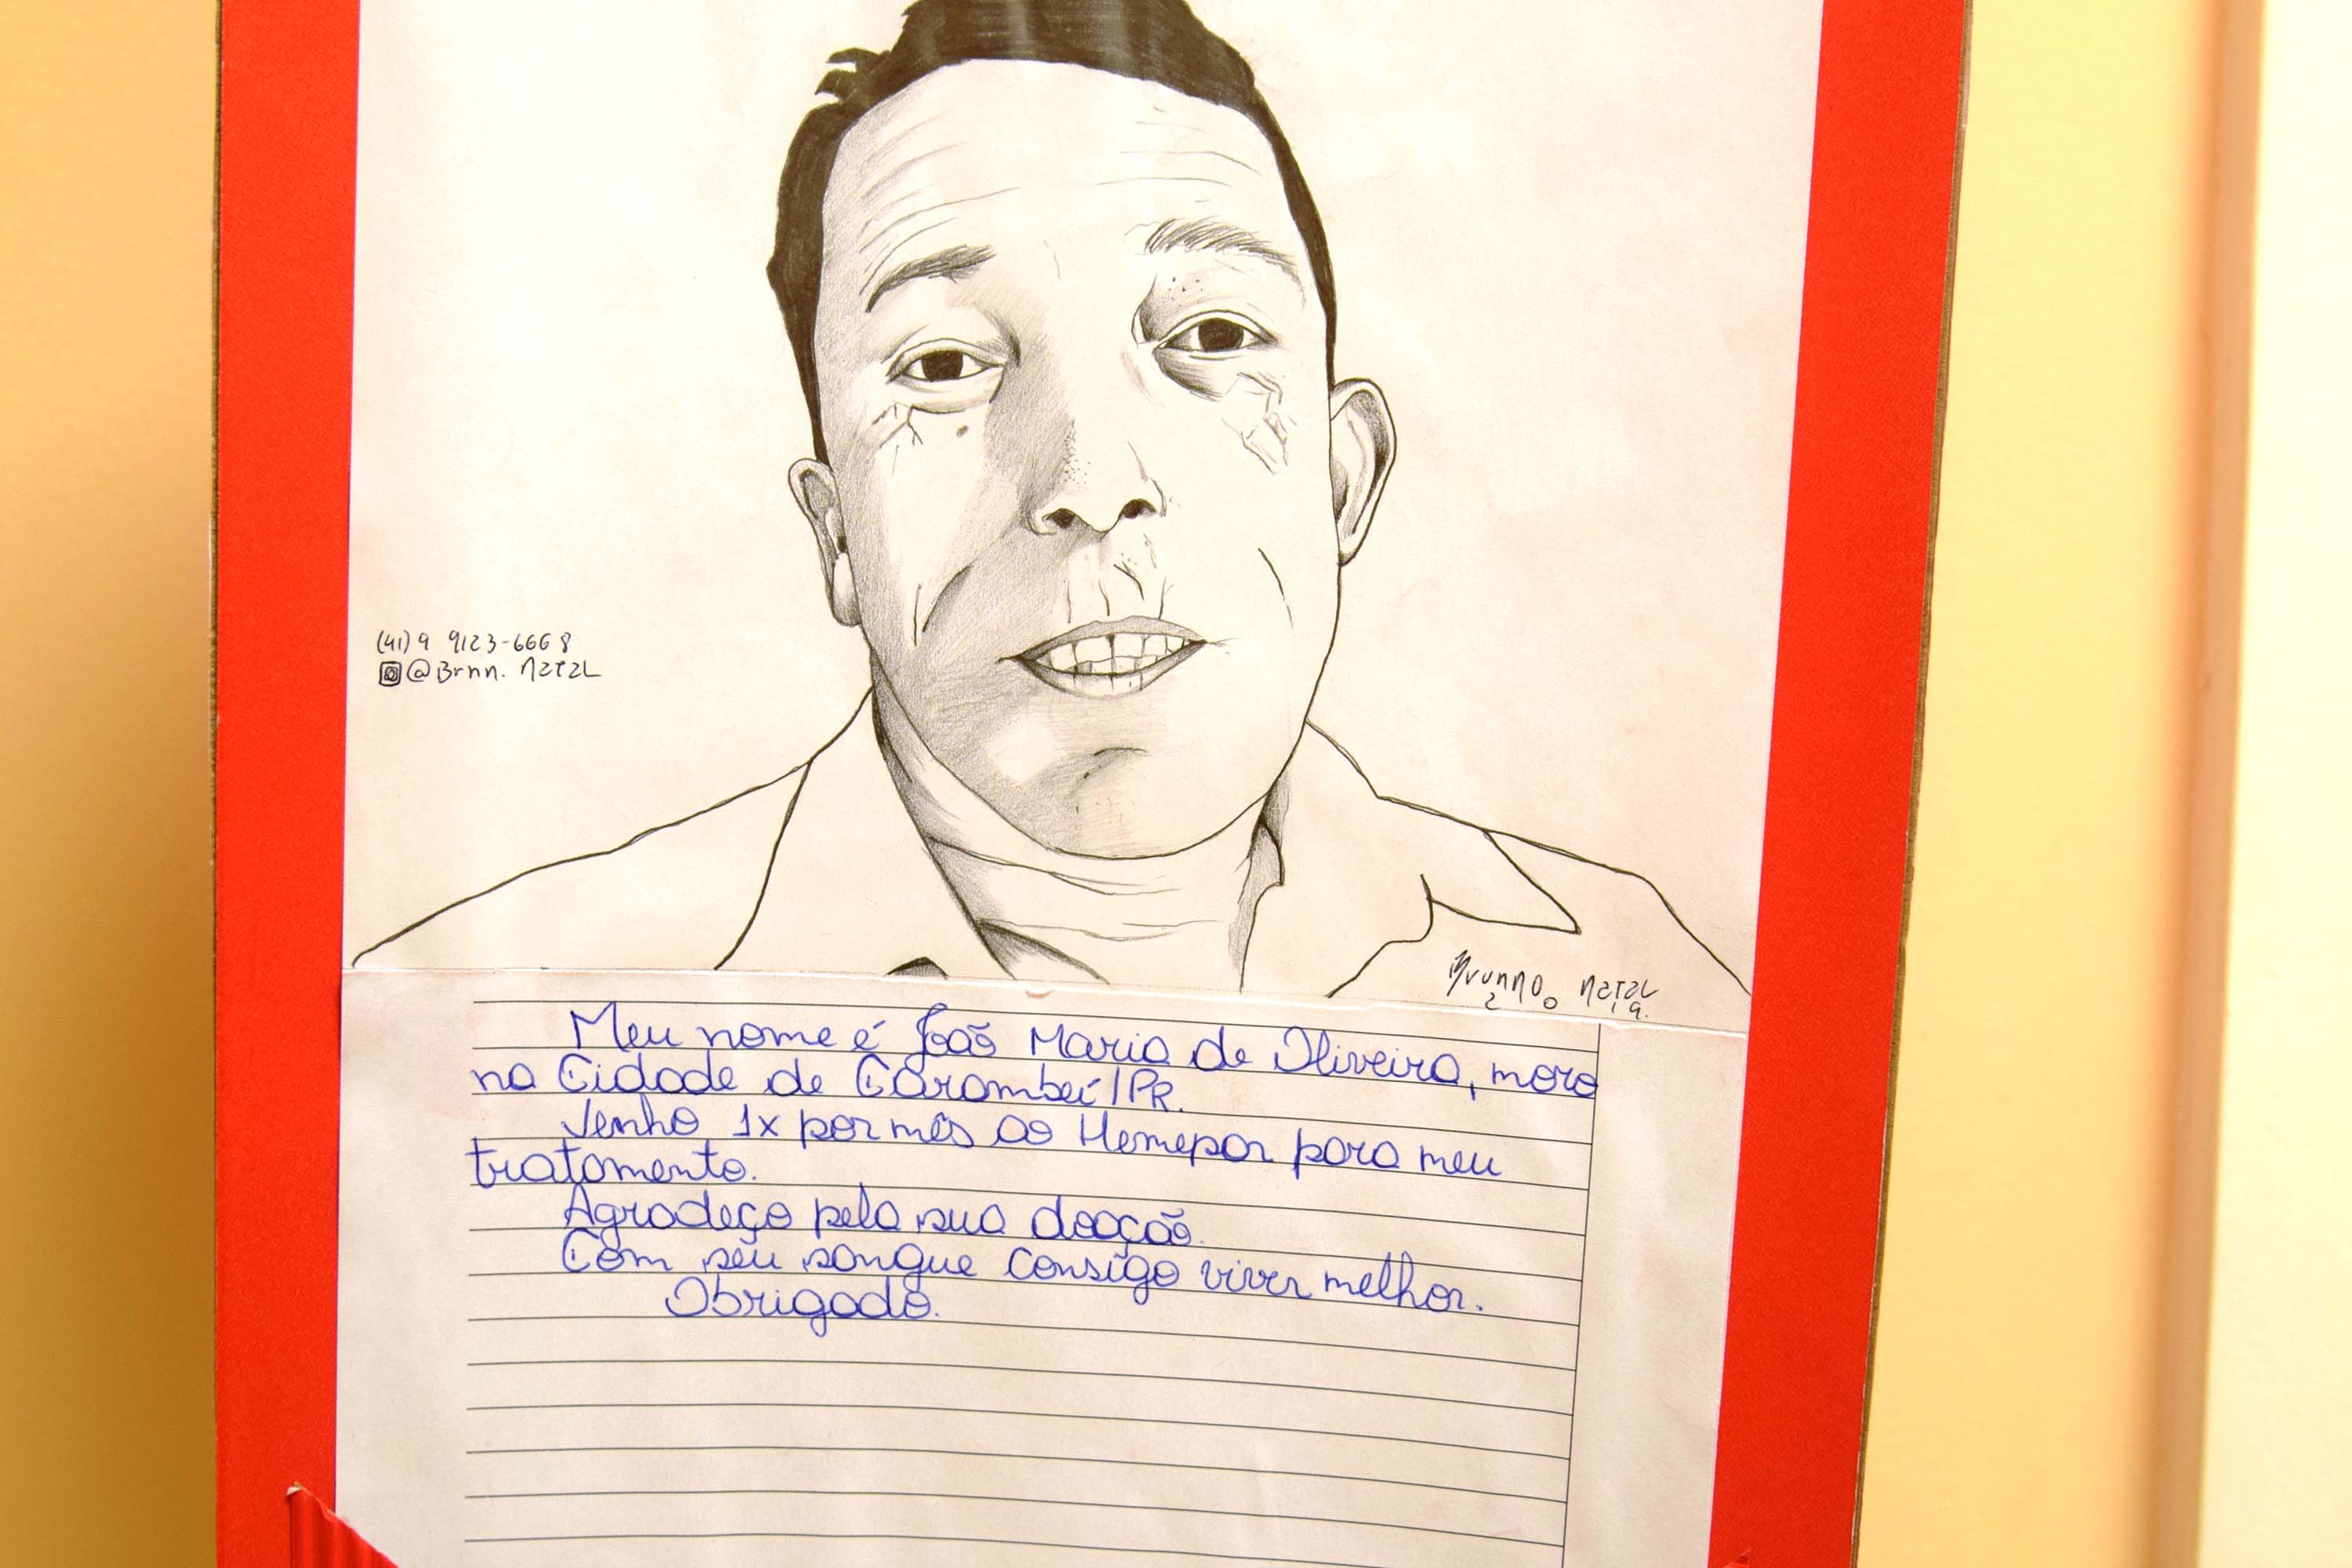 (41) 9 9123-6668
@Brnn. Natal
Brunno Natal
2019.
Meu nome é João Maria de Oliveira, moro
na Cidade de Carambeí/PR.
Venho 1x por mês ao Hemepar para meu
tratamento.
Agradeço pela sua doação.
Com seu sangue consigo viver melhor.
Obrigado.